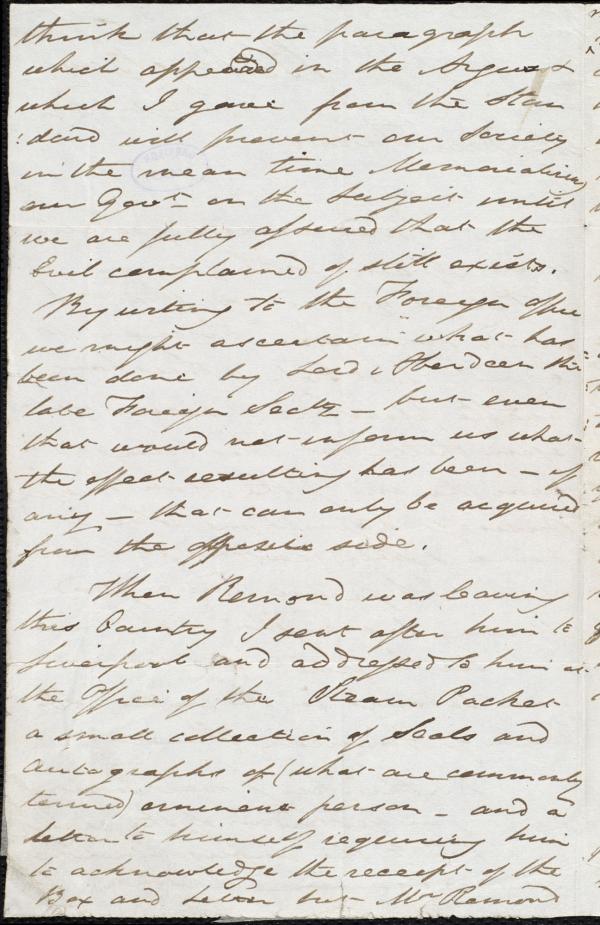 think that the paragraph
which appeared in the Argus &
which I gave from the Stan
:dard will prevent our Society
in the mean time Memorializing
our Govt. on the Subject until
we are fully assured that the
Evil complained of still exists.
By writing to the Foreign office
we might ascertain what has
been done by Lord Aberdeen the
late Foreign Secty — but even
that would not inform us what
the effect resulting has been — if
any — that can only be acquired
from the opposite side.
When Remond was leaving
this Country I sent after him to
Liverpool and addressed to him at
the Office of the Steam Packet
a small collection of Seals and
Autographs of (what are commonly
termed) eminent person — and a
letter to himself requiring him
to acknowledge the receipt of the
Box and Letter but Mr Remond